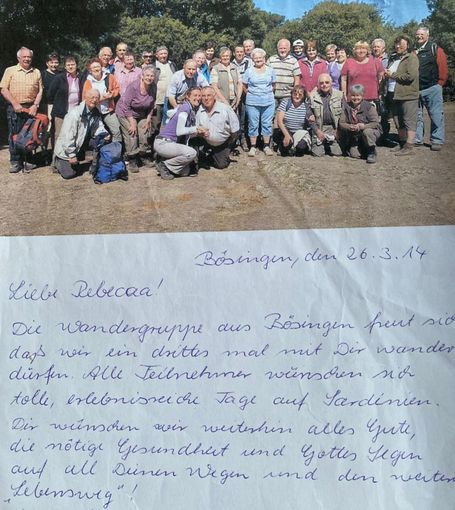 Bösingen, den 26.3.14
Liebe Rebecaa!
Die Wandergruppe aus Bösingen freut sich
daß wir ein drittes mal mit Dir wander
dürfen. Alle Teilnehmer wünschen sich
tolle, erlebnisreiche Tage auf Sardinien.
Dir wünschen wir weiterhin alles Gute,
die nötige Gesundheit und Gottes Segen
auf all Deinen Wegen und den weiteren
„Lebensweg"!